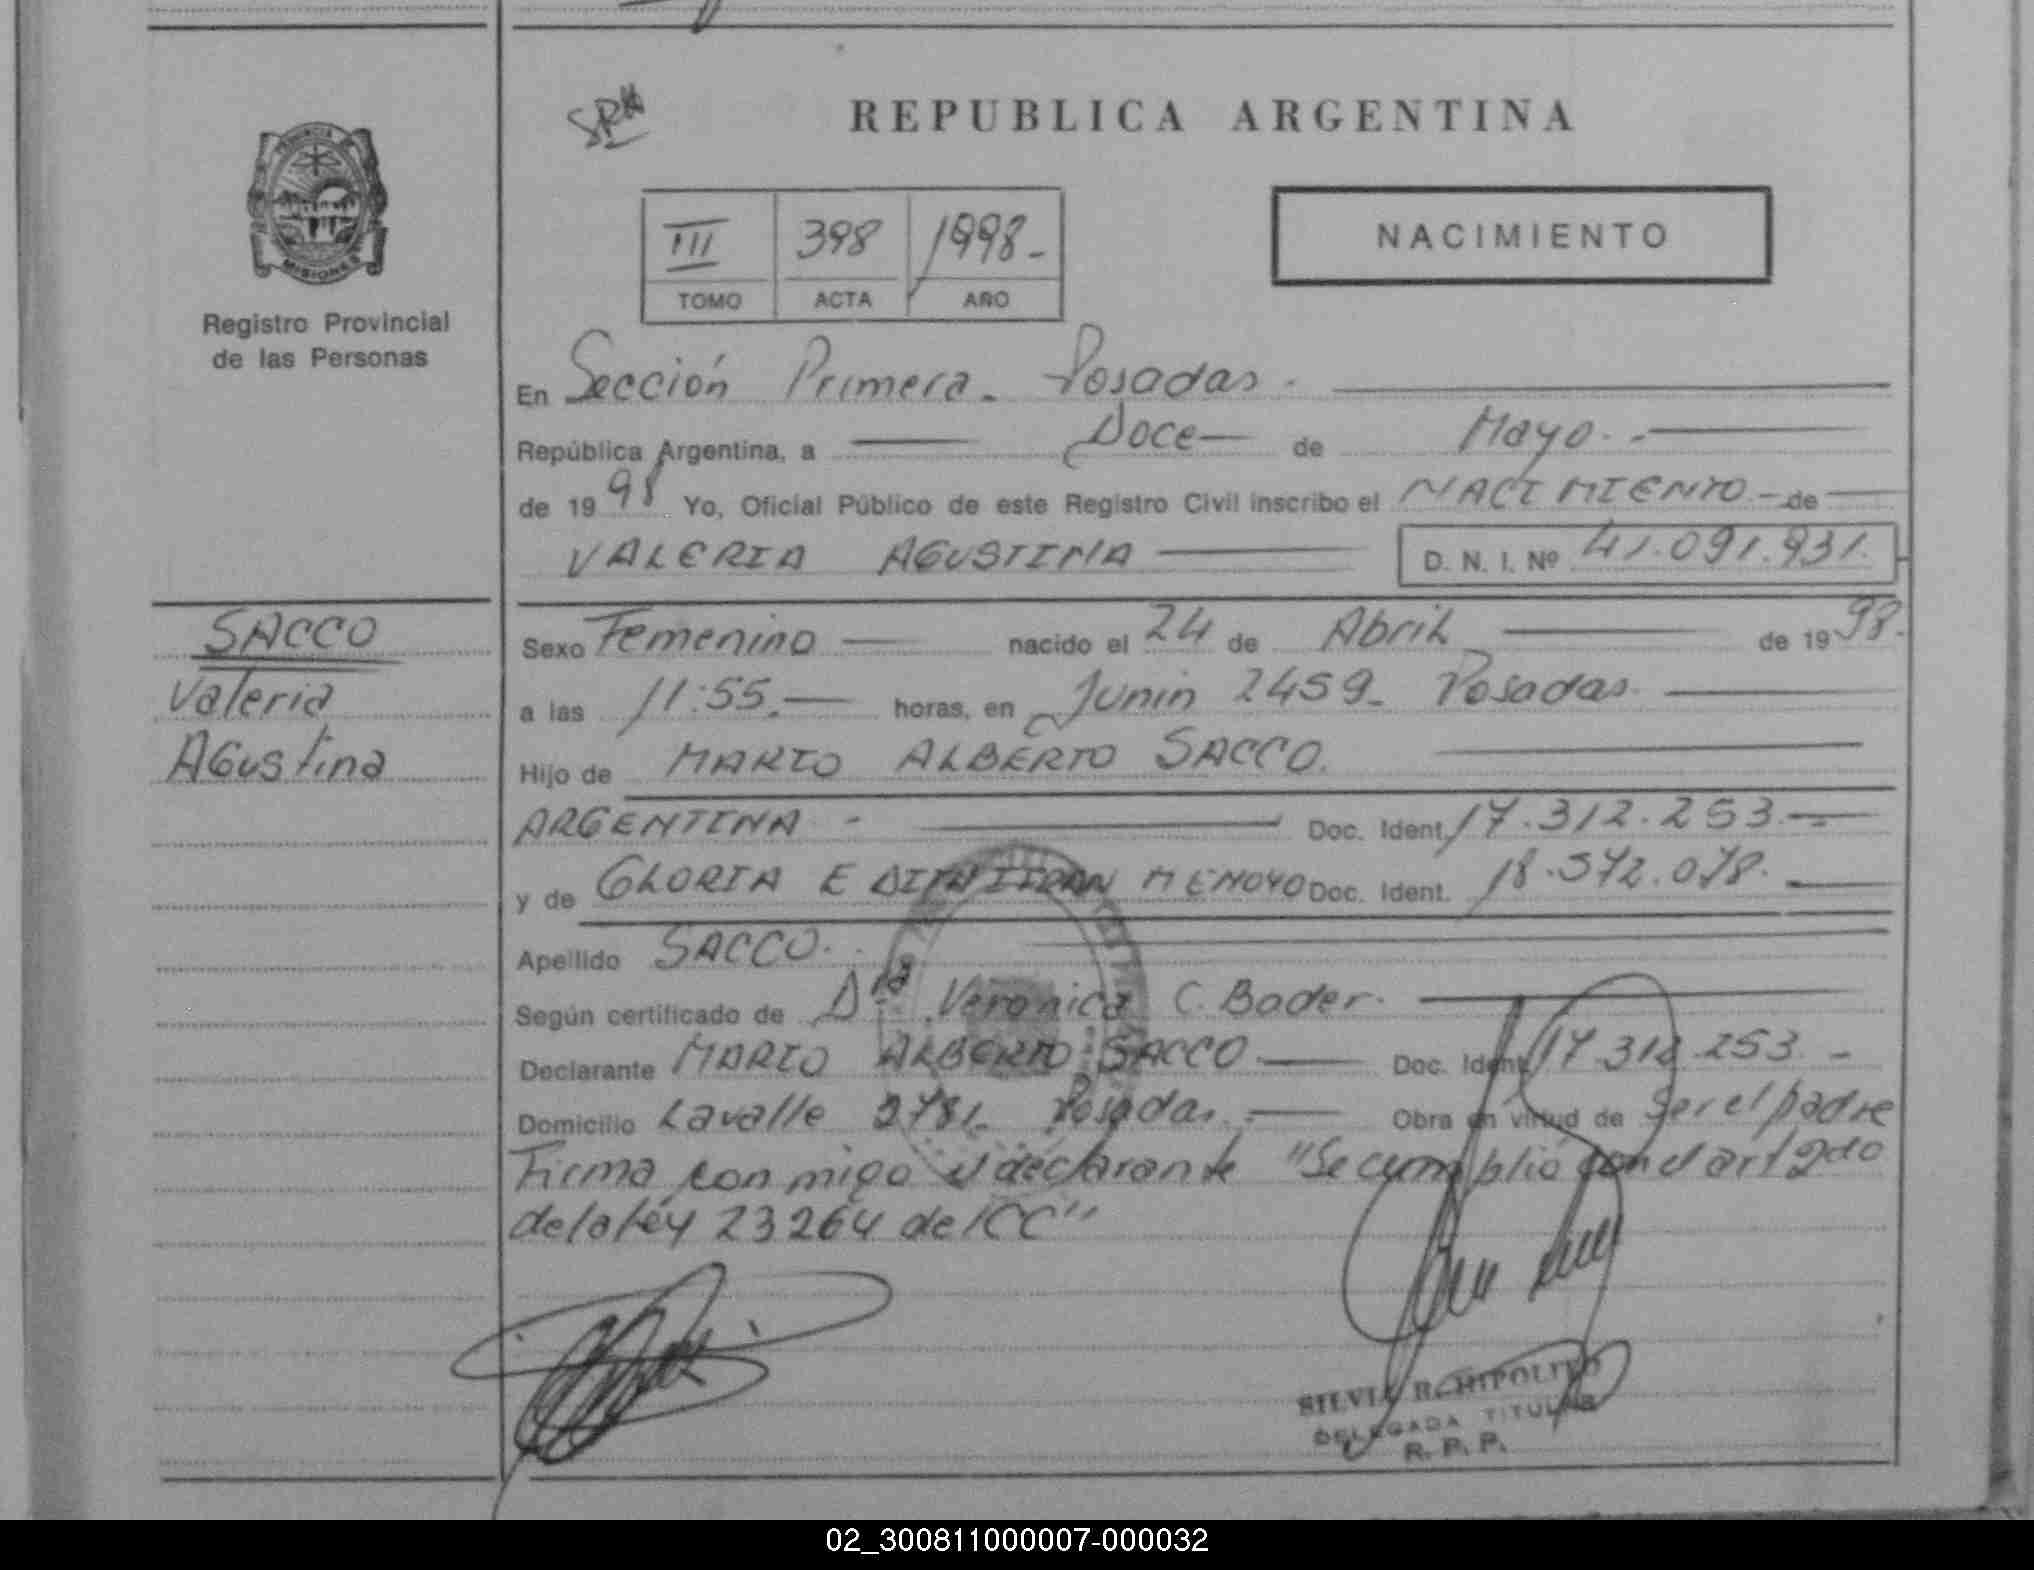 SRH
REPUBLICA ARGENTINA
PROVINCIA
MISIONES
Registro Provincial
de las Personas
III 398 1998-
TOMO ACTA AÑO
NACIMIENTO
En Sección Primera - Posadas.
República Argentina, a Doce de Mayo.
de 1998 Yo, Oficial Público de este Registro Civil inscribo el NACIMIENTO de
VALERIA AGUSTINA D. N. I. Nº 41.091.931.
SACCO
Valeria
Agustina
Sexo Femenino nacido el 24 de Abril de 1998.
a las 11:55. horas, en Junin 2459- Posadas.
Hijo de MARIO ALBERTO SACCO.
ARGENTINA - Doc. Ident. 17.312.253.
y de GLORIA EDITH MENOYO Doc. Ident. 18.572.078.
Apellido SACCO.
Según certificado de Dra. Veronica C. Bader.
Declarante MARIO ALBERTO SACCO Doc. Ident. 17.312.253.
Domicilio Lavalle 2781- Posadas. Obra en virtud de ser el padre
Firma con migo el declarante "Se cumplió con el art 2do
de la ley 23264 del CC"
SILVIA R. HIPOLITO
DELEGADA TITULAR
R. P. P.
02_300811000007-000032